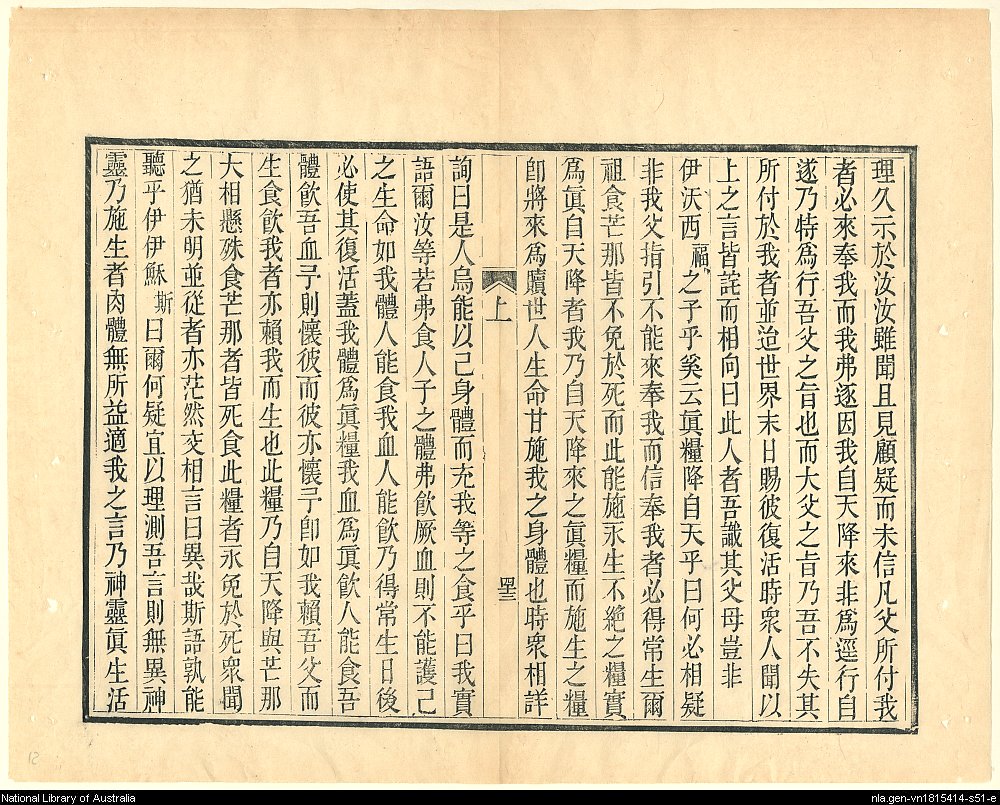 理久示於汝汝雖聞且見顧疑而未信凡父所付我
者必來奉我而我弗逐因我自天降來非爲逕行自
遂乃特爲行吾父之旨也而大父之旨乃吾不失其
所付於我者並迨世界末日賜彼復活時衆人聞以
上之言皆詫而相向曰此人者吾識其父母豈非
伊沃西福之子乎奚云眞糧降自天乎曰何必相疑
非我父指引不能來奉我而信奉我者必得常生爾
祖食芒那皆不免於死而此能施永生不絶之糧實
爲眞自天降者我乃自天降來之眞糧而施生之糧
卽將來爲贖世人生命甘施我之身體也時衆相詳
上
四十三
詢曰是人烏能以己身體而充我等之食乎曰我實
語爾汝等若弗食人子之體弗飮厥血則不能護己
之生命如我體人能食我血人能飮乃得常生日後
必使其復活蓋我體爲眞糧我血爲眞飮人能食吾
體飮吾血予則懷彼而彼亦懷予卽如我賴吾父而
生食飮我者亦賴我而生也此糧乃自天降與芒那
大相懸殊食芒那者皆死食此糧者永免於死衆聞
之猶未明並從者亦茫然交相言曰異哉斯語孰能
聽乎伊伊穌斯曰爾何疑宜以理測吾言則無異神
靈乃施生者肉體無所益適我之言乃神靈眞生活
National Library of Australia
nla.gen-vn1815414-s51-e